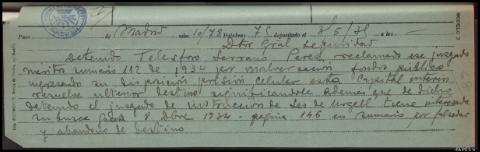 Para de Madrid núm. 10/78 Palabras 75 depositado el 8/6/35 a las
Dtor Gral Seguridad
Detenido Telesforo Serrano Perez reclamado ese juzgado
mérito sumario 112 de 1934 por malversación fondos públicos
ingresado su disposición prisión celular esta Capital interin
resuelve ulterior destino significandole además que de dicho
detenido el juzgado de instrucción de Seo de Urgell tiene interesada
su busca 8 Obre 1934 - página 146 en sumario por falsedad
y abandono de destino